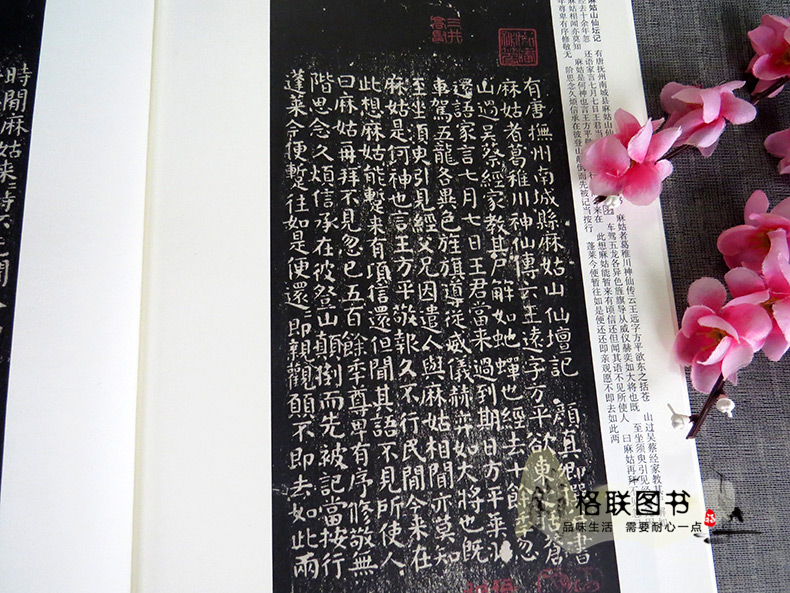 麻姑山仙坛记
经去十余年忽
麻姑相闻亦莫知
年尊卑有序修敬无
有唐抚州南城县麻姑山仙
还语家言七月七日王君当
麻姑是何神也言王方平
阶思念久烦信承在彼登山颠倒而先被记当按行
麻姑者葛稚川神仙传云王远字方平欲东之括苍
车驾五龙各异色旌旗导从威仪赫奕如大将也既
此想麻姑能暂来有顷信还但闻其语不见所使人
蓬莱今便暂往如是便还还即亲观愿不即去如此两
山过吴蔡经家教其
至坐须臾引见经
曰麻姑再拜不
有唐撫州南城縣麻姑山仙壇記 顏真卿撰 書
麻姑者葛稚川神仙傳云王遠字方平欲東之括蒼
山過吳蔡經家教其尸解如虵蟬也經去十餘年忽
還語家言七月七日王君當來過到期日方平乘羽
車駕五龍各異色旌旗導從威儀赫弈如大將也既
至坐須臾引見經父兄因遣人與麻姑相聞亦莫知
麻姑是何神也言王方平敬報久不行民間今來在
此想麻姑能暫來有頃信還但聞其語不見所使人
曰麻姑再拜不見忽已五百餘年尊卑有序修敬無
階思念久煩信承在彼登山顛倒而先被記當按行
蓬萊今便暫往如是便還還即親觀願不即去如此兩
時聞麻姑來
格联图书
品味生活 需要耐心一点